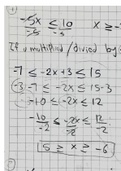 -5x ≤ 10 x ≥ -
-5 -5
If u multiplied / divided by
-7 ≤ -2x+3 ≤ 15
-3 -7 ≤ -2x ≤ 15-3
-10 ≤ -2x ≤ 12
-10 ≤ -2x ≤ 12
-2 -2 -2
5 ≥ x ≥ -6